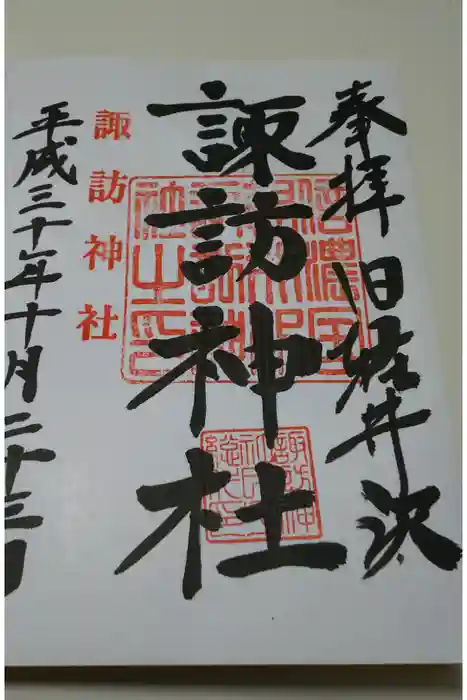 奉拝 旧軽井沢
諏訪神社
諏訪神社
平成三十年十月二十三日